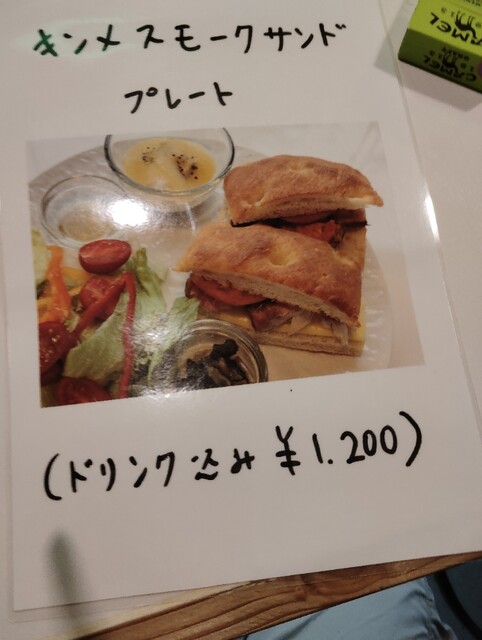 キンメスモークサンド
プレート
(ドリンク込み ¥1.200)
CAMEL
CAMEL